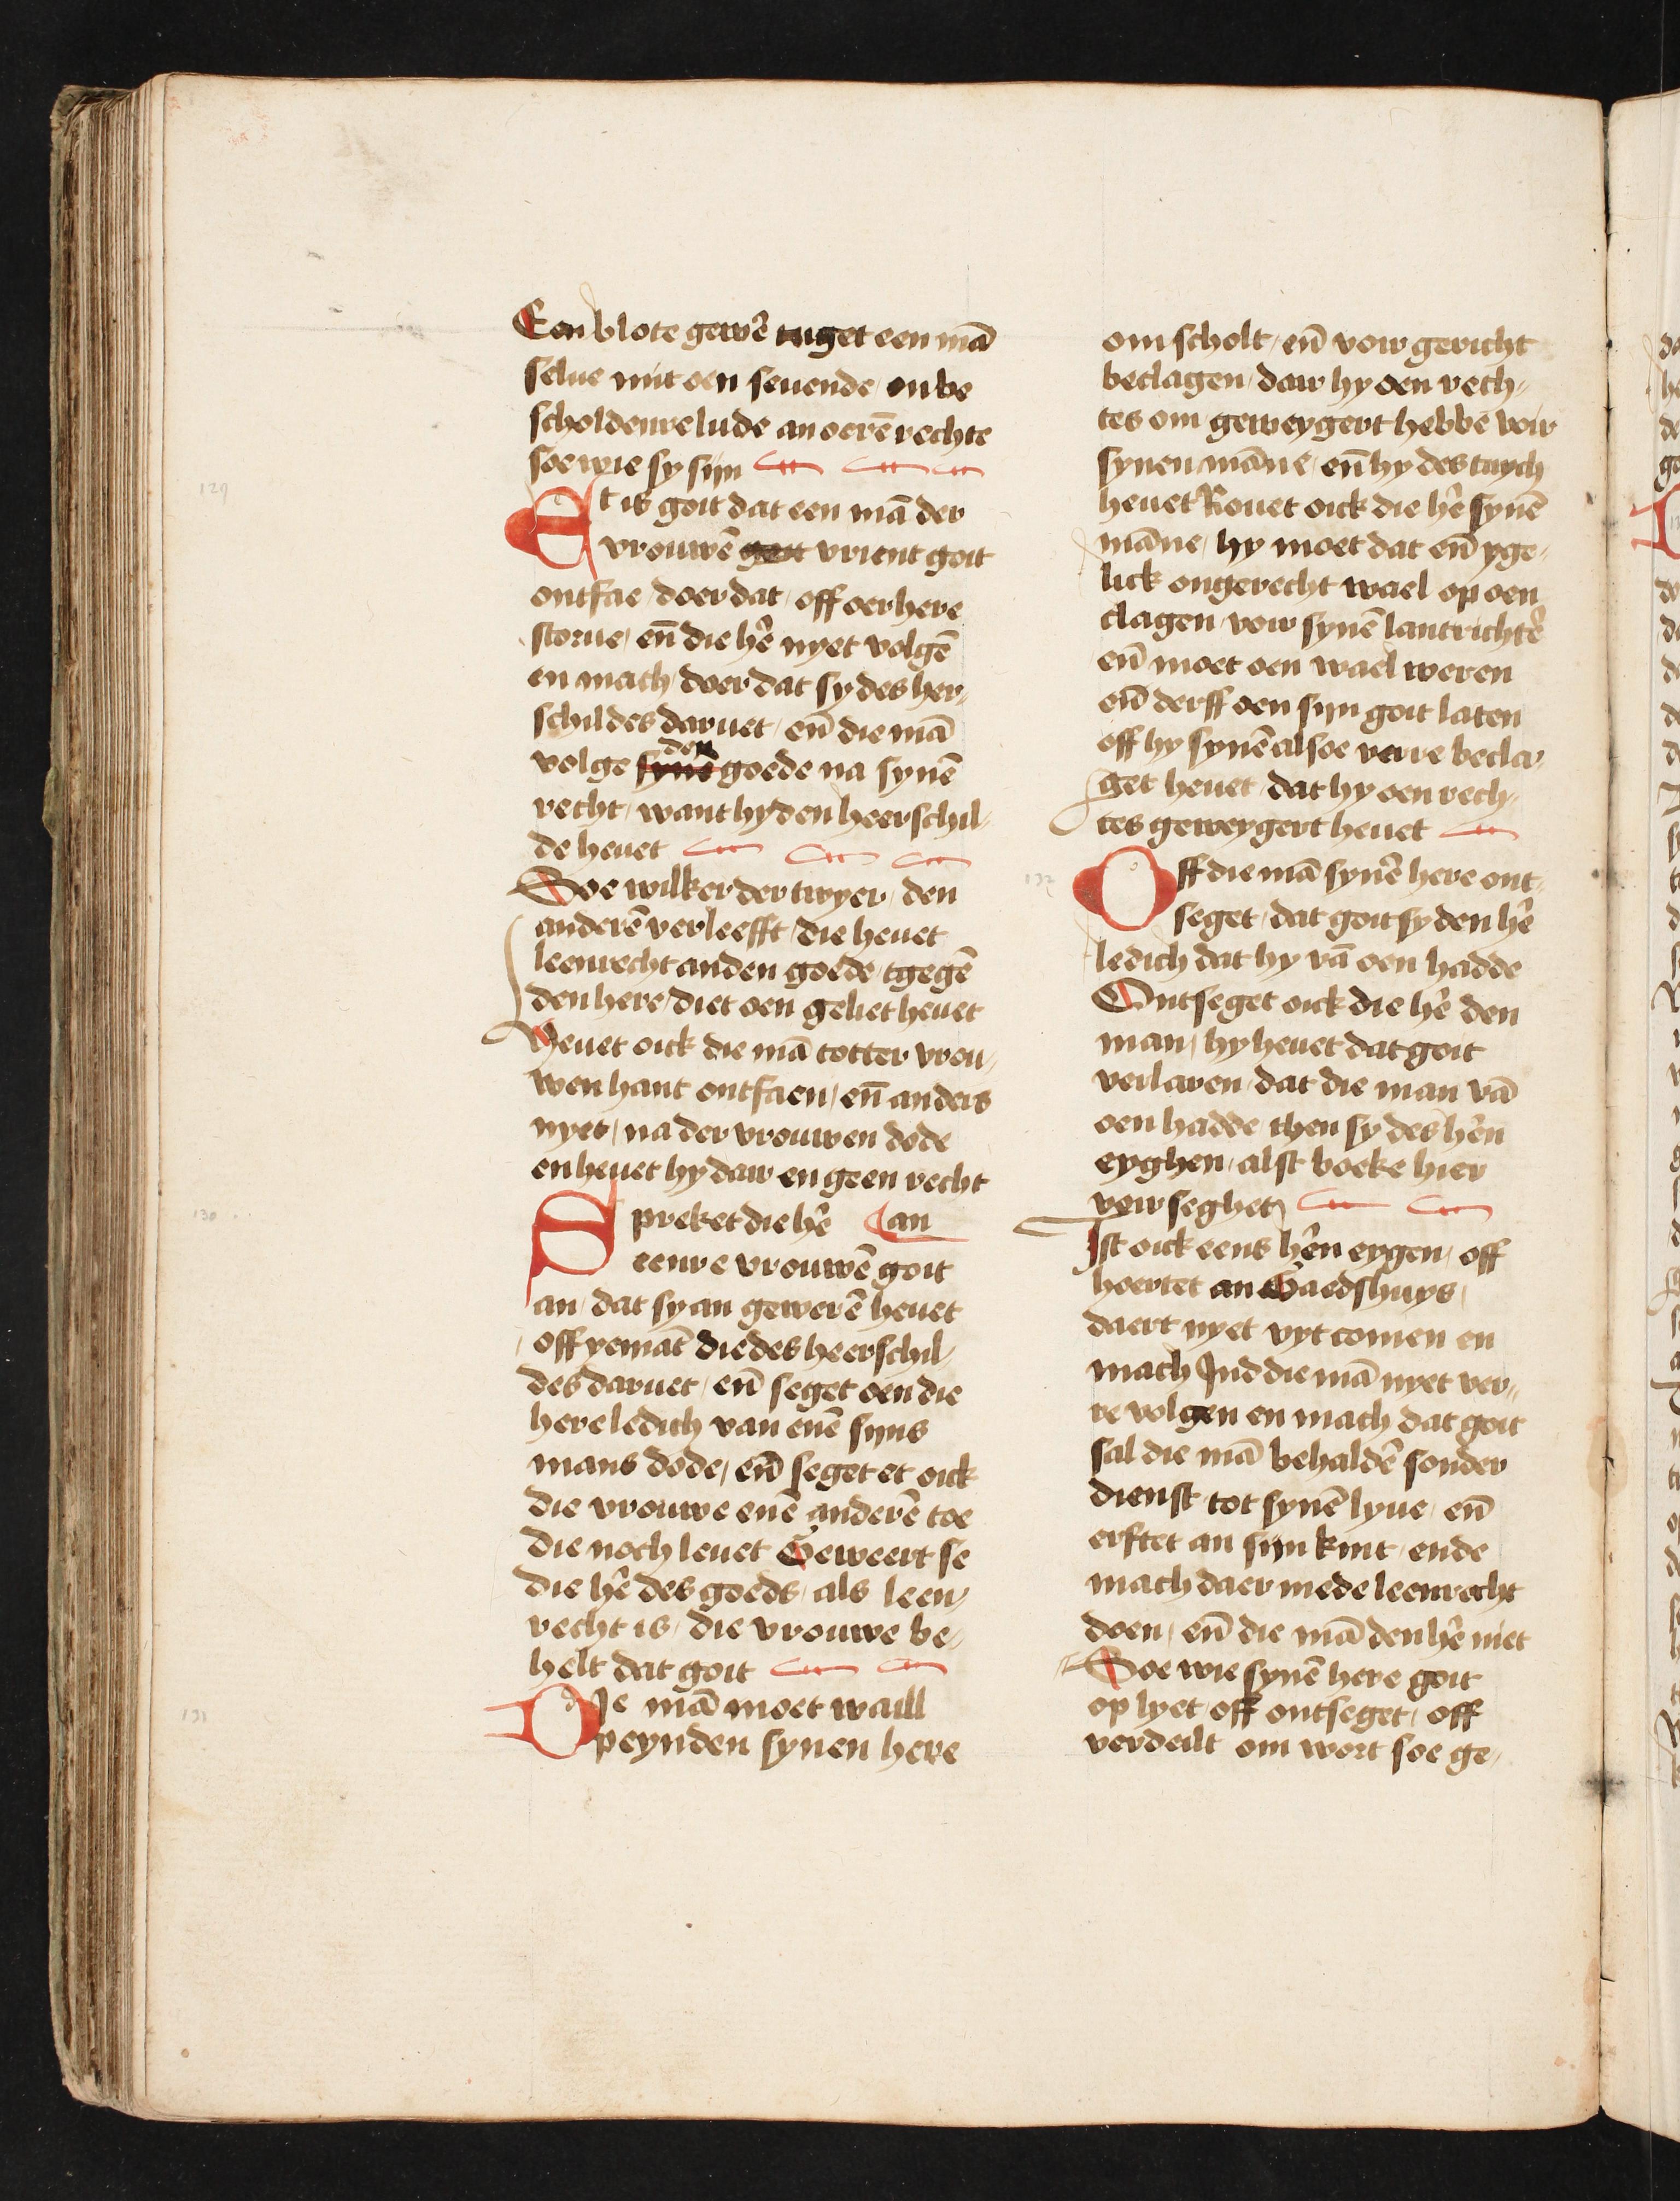 Een blote gewẽr tuget een mã
selue mit oen seuende / onbe
scholdenre lude an oerẽ rechte
soe wie sy sijn
129
Et is goit dat een mã der
vrouwẽ vrient goit
ontfae / doer dat / off oer here
storue / eñ die hẽr nyet volgẽ
en mach / doer dat sy des her-
schildes daruet / eñ die mã
den
volge synẽ goede na synẽ
recht / want hy den heerschil-
de heuet
Soe wilker der twyer / den
anderẽ verleefft / die heuet
leenrecht an den goede / tgegẽ
den here / diet oen geliet heuet
Heuet oick die mã totter vrou-
wen hant ontfaen / eñ anders
nyet / na der vrouwen dode
en heuet hy daer en geen recht
130
Spreket die hẽr an
eenre vrouwẽ goit
an / dat sy an gewerẽ heuet
/ off yemãt die des heerschil-
des daruet / eñ seget oen die
here ledich van enẽ syns
mans dode / eñ seget et oick
die vrouwe enẽ anderẽ toe
die noch leuet Geweert se
die hẽr des goeds / als leen-
recht is / die vrouwe be-
helt dat goit
131
DIe mã moet waill
peynden synen here
om scholt / eñ voir gericht
beclagen / daer hy oen rech-
tes om geweygert hebbe voir
synen mãne / eñ hy des tuych
heuet Rouet oick die hẽr synẽ
mãne / hy moet dat eñ yge-
lick ongerecht wael op oen
clagen / voir synẽ lantrichtẽr
eñ moet oen wael weren
eñ derff oen sijn goit laten
off hy synẽ alsoe verre becla-
get heuet / dat hy oen rech-
tes geweygert heuet
132
Off die mã synẽ here ont-
seget / dat goit sy den hẽr
ledich dat hy vã oen hadde
Ontseget oick die hẽr den
man / hy heuet dat goit
verlaren / dat die man vã
oen hadde / then sy des hẽrn
eyghen / alst boeke hier
voir seghet
Ist oick eens hẽrn eygen / off
hoertet an Gaedshuys /
daert nyet vyt comen en
mach Ind die mã nyet ver-
re volgen en mach dat goit
sal die mã behaldẽ sonder
dienst / tot synẽ lyue / eñ
erftet an sijn kint / ende
mach daer mede leenrecht
doen / eñ die mã den hẽr niet
Soe wie synẽ here goit
op lyet / off ontseget / off
verdeilt om wort soe ge-